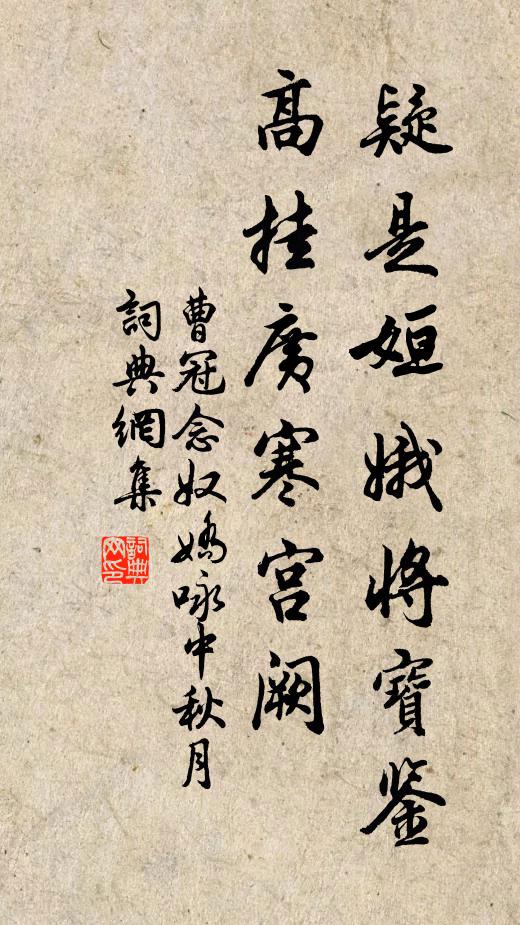 疑是姮娥將寶鑒
高挂廣寒宮闕
曹冠念奴嬌咏中秋月
詞典網集
詞典网印